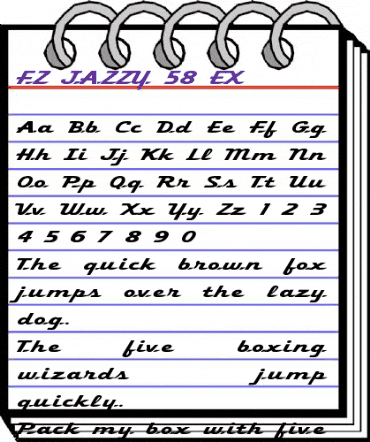 FZ JAZZY 58 EX
Aa Bb Cc Dd Ee Ff Gg
Hh Ii Jj Kk Ll Mm Nn
Oo Pp Qq Rr Ss Tt Uu
Vv Ww Xx Yy Zz 1 2 3
4 5 6 7 8 9 0
The quick brown fox
jumps over the lazy
dog.
The five boxing
wizards jump
quickly.
Pack my box with five